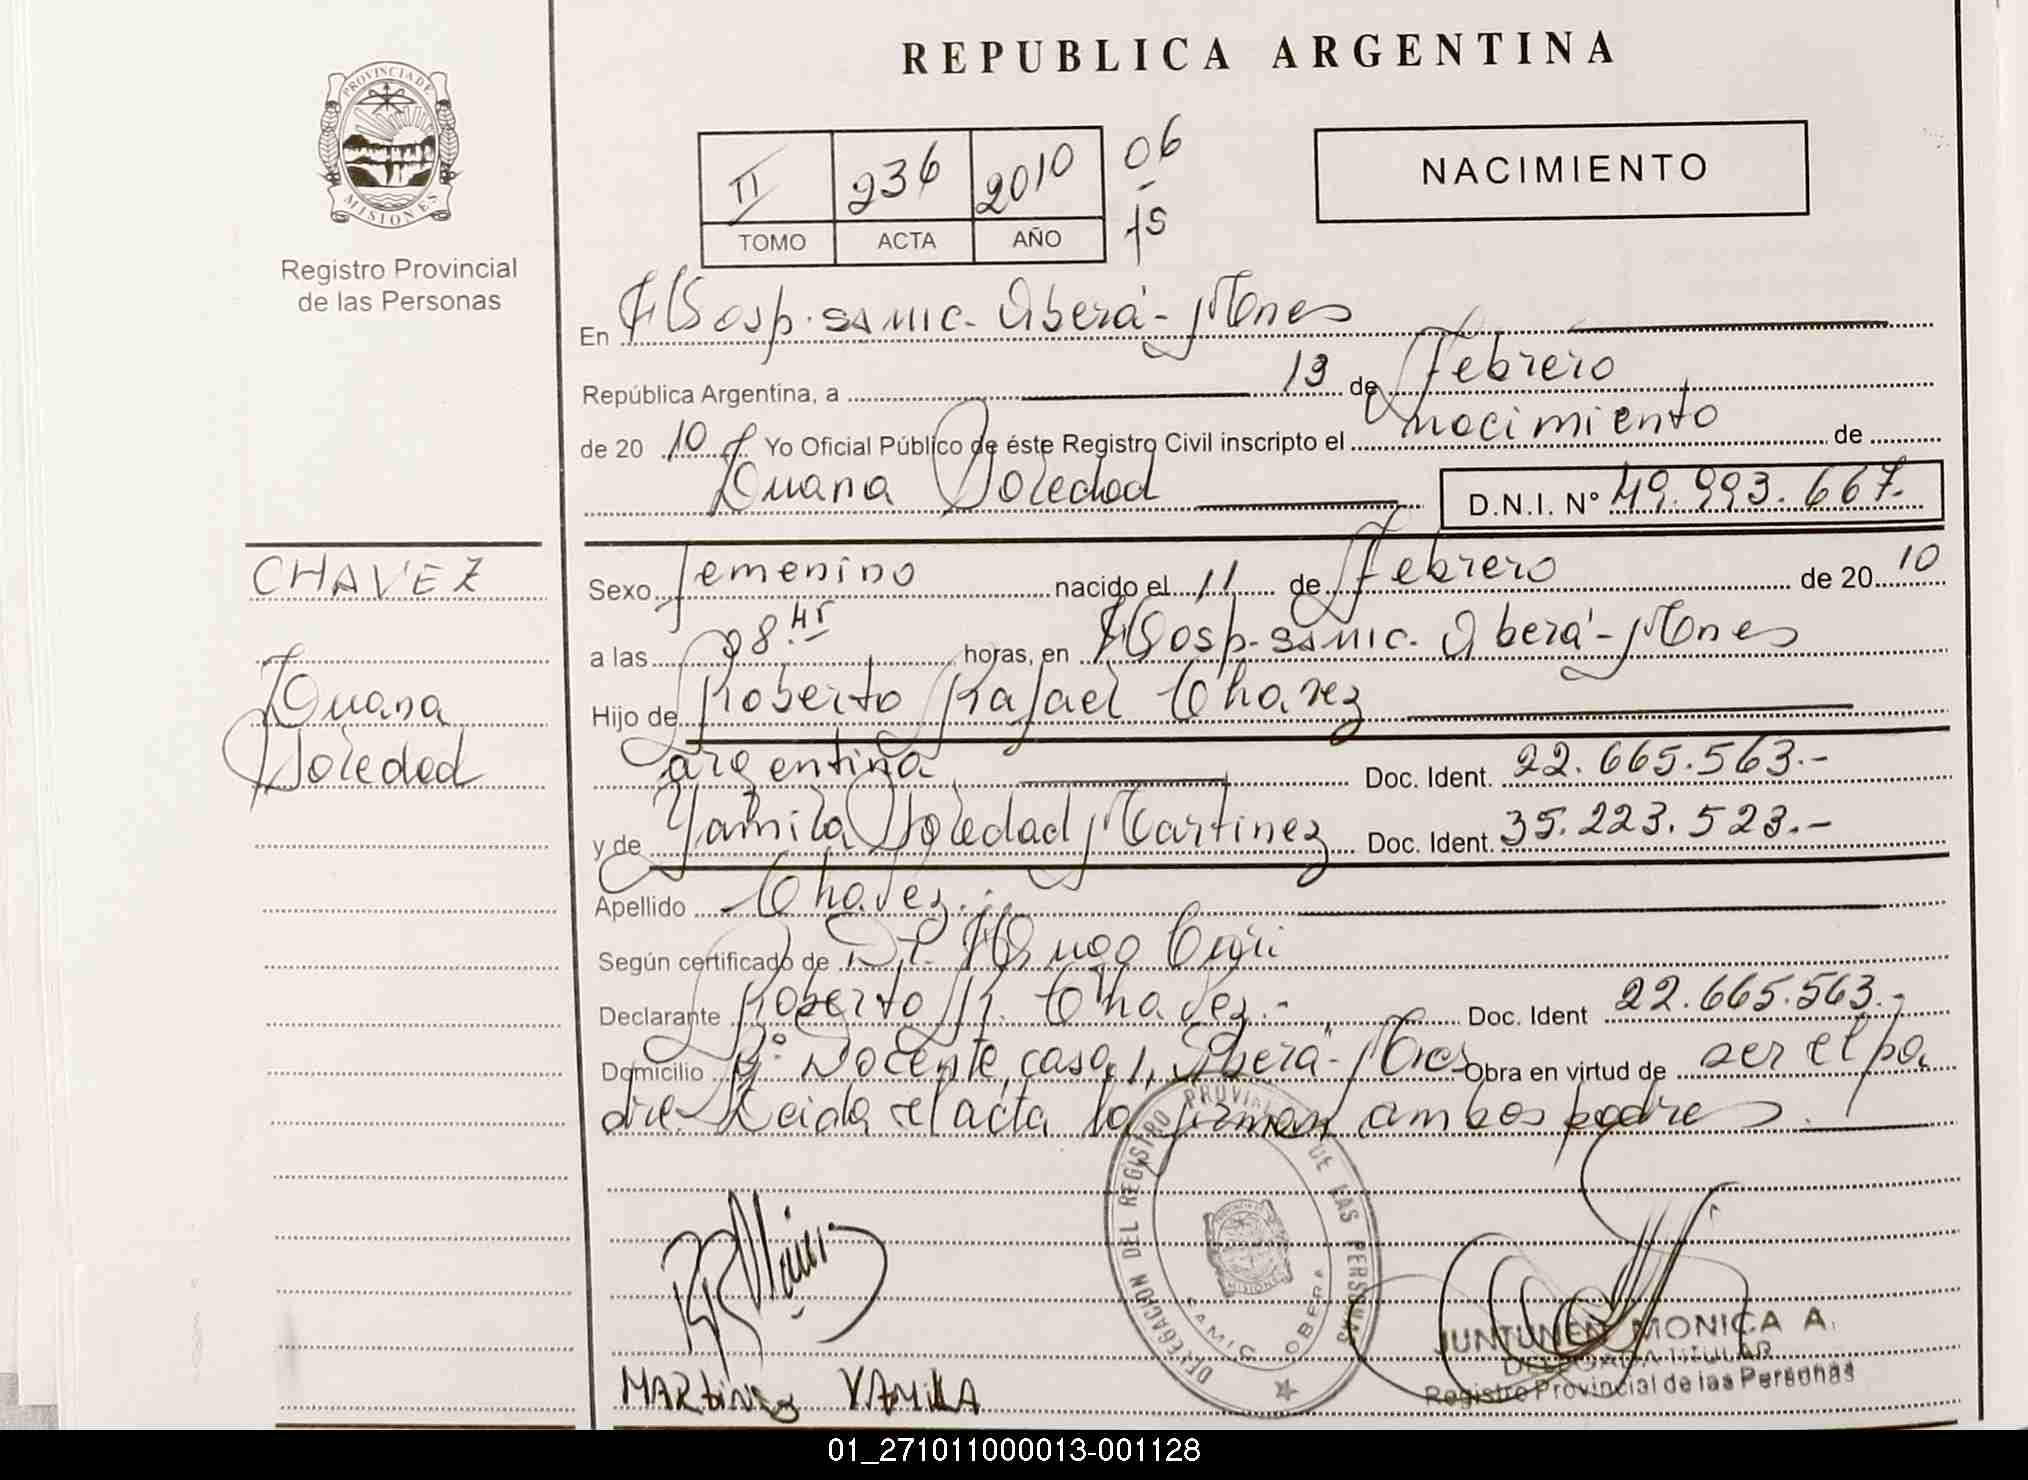 REPUBLICA ARGENTINA
PROVINCIA DE MISIONES
Registro Provincial
de las Personas
II 236 2010 06
TOMO ACTA AÑO 15
NACIMIENTO
En Hosp. SAMIC. Oberá - Mnes
República Argentina, a 13 de Febrero
de 20 10 Yo Oficial Público de éste Registro Civil inscripto el nacimiento de
Luana Soledad D.N.I. Nº 49.993.667.-
CHAVEZ
Luana
Soledad
Sexo femenino nacido el 11 de Febrero de 20 10
a las 08.45 horas, en Hosp. SAMIC. Oberá - Mnes
Hijo de Roberto Rafael Chavez
argentina Doc. Ident. 22.665.563.-
y de Yamila Soledad Martinez Doc. Ident. 35.223.523.-
Apellido Chavez.-
Según certificado de Dr. Hugo
Declarante Roberto R. Chavez.- Doc. Ident 22.665.563.-
Domicilio Bº Docente, casa 1, Oberá - Mnes Obra en virtud de ser el pa
dre. Leida el acta la firman ambos padres.
DELEGACION DEL REGISTRO PROVINCIAL DE LAS PERSONAS
SAMIC OBERA
MARtinez YAMILA
JUNTUNEN MONICA A.
DELEGADA TITULAR
Registro Provincial de las Personas
01_271011000013-001128